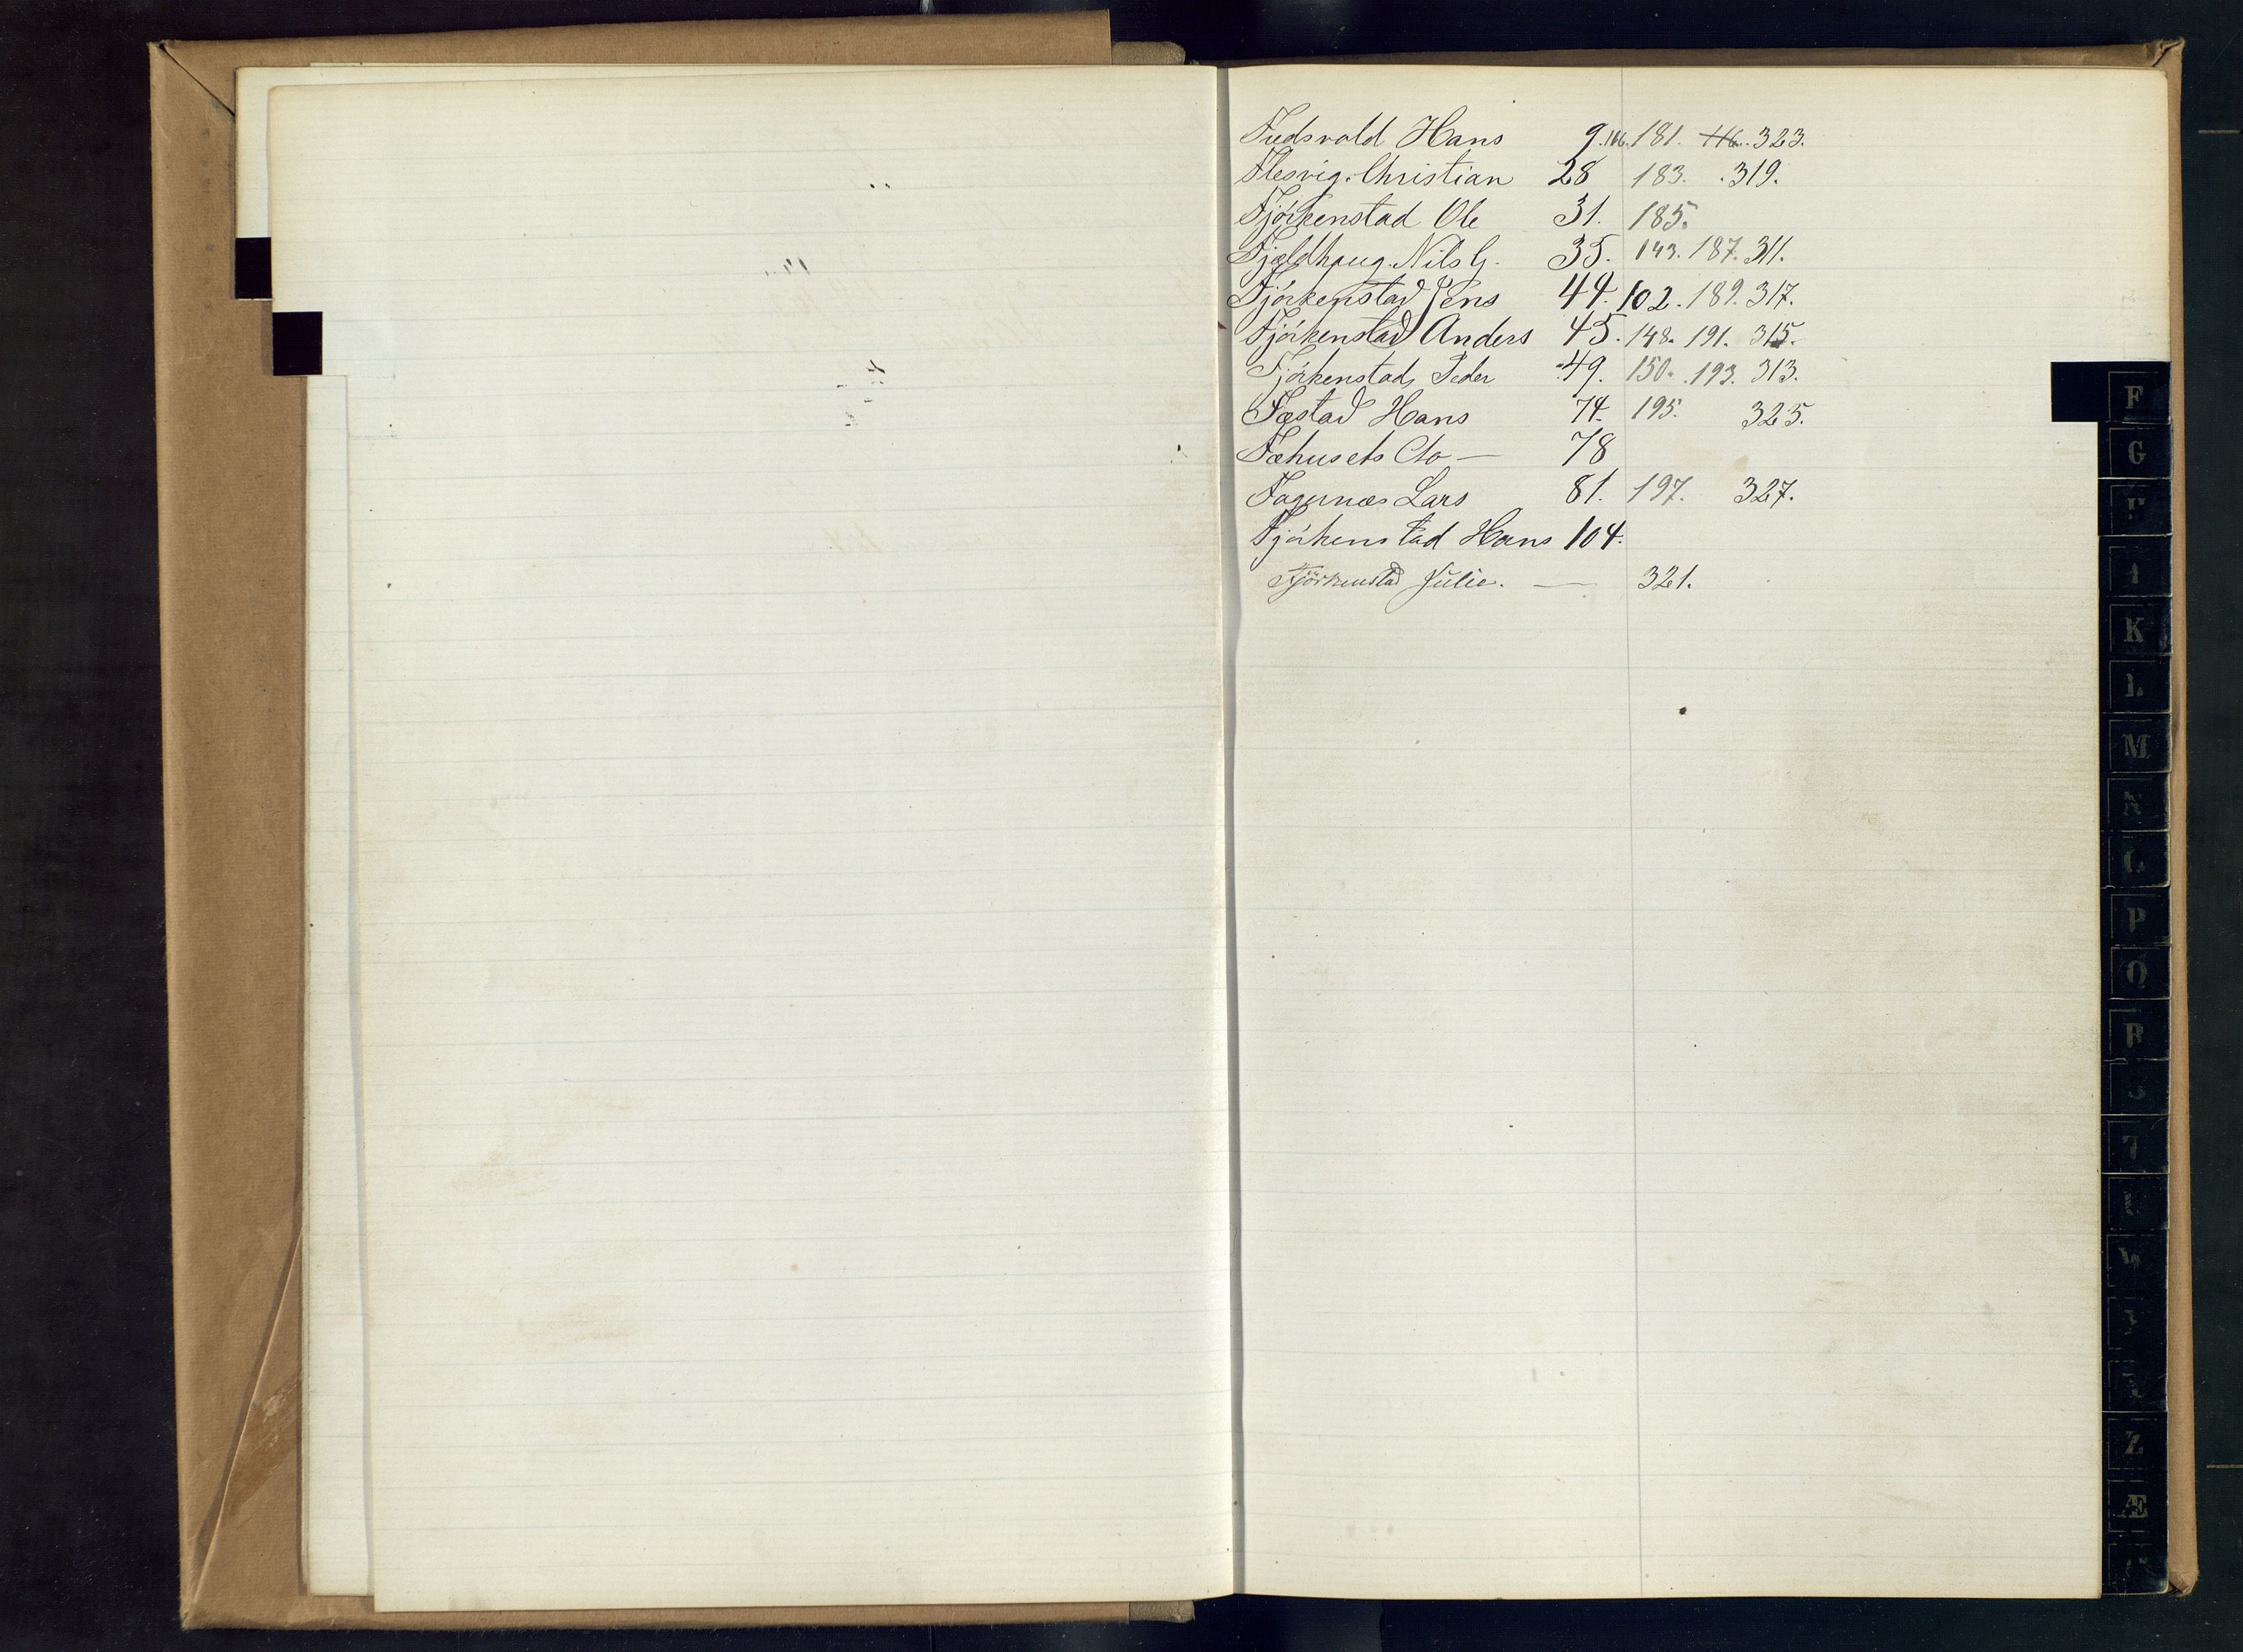 Fredsvold Hans 9. 116. 181. 116. 323.
Flesvig. Christian 28 183. 319.
Fjörkenstad Ole 31. 185.
Fjeldhaug. Nils G. 35. 143. 187. 311.
Fjörkenstad Jens 44. 102. 189. 317.
Fjörkenstad Anders 45. 148. 191. 315.
Fjörkenstad, Peder 49. 150. 193. 313.
Fæstad Hans 74. 195. 325.
Fæhusets Cto — 78
Fagernæs Lars 81. 197. 327.
Fjörkenstad Hans 104.
Fjörkenstad Julie. — 321.
F
G
H
I
K
L
M
N
O
P
Q
R
S
T
U
W
Z
Æ